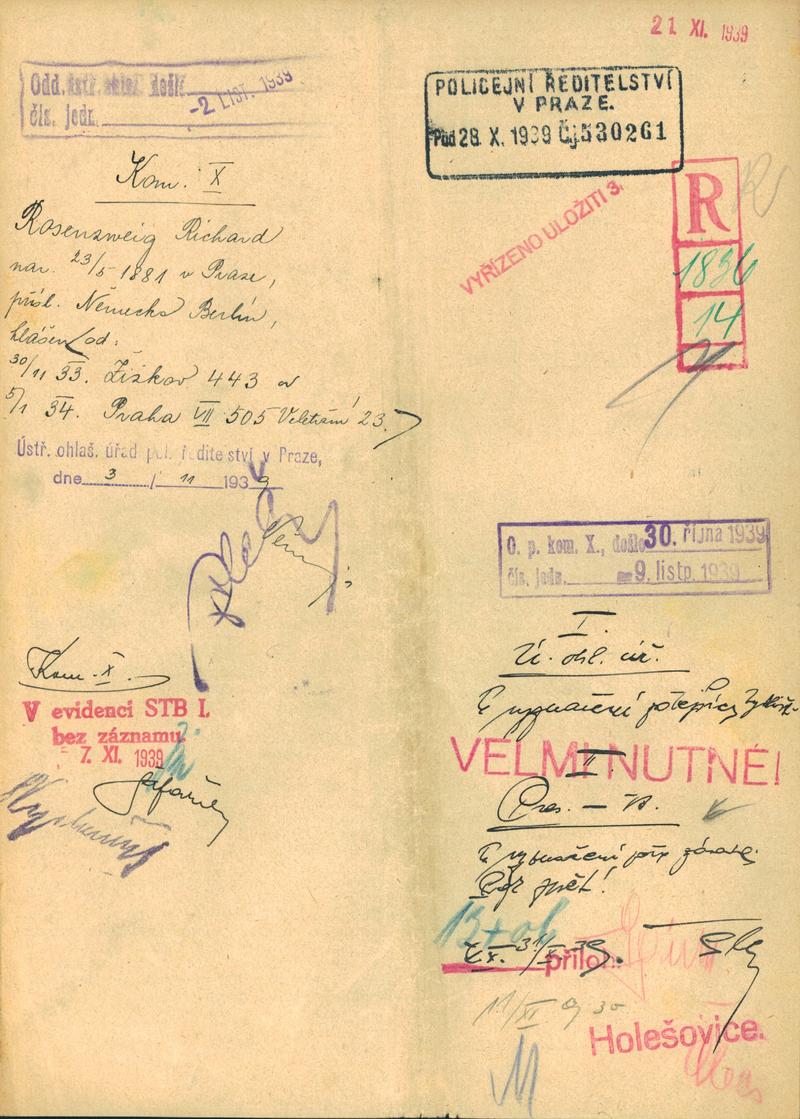 21 XI. 1939
Odd. došlo -2 LIST. 1939
čís. jedn.
Kom. X
Rosenzweig Richard
nar. 23/5 1881 v Praze,
přísl. Německo Berlín,
hlášen od:
30/11 33. Žižkov 443 a
5/1 34. Praha VII 505 Veletržní 23.
Ústř. ohlaš. úřad pol. ředitelství v Praze,
dne 3 / 11 1939
Kom. X.
V evidenci STB I.
bez záznamu.
- 7. XI. 1939
POLICEJNÍ ŘEDITELSTVÍ
V PRAZE.
Pod 28. X. 1939 Čj. 530261
VYŘÍZENO ULOŽITI 3.
R
1836
14
O. p. kom. X., došlo 30. října 1939
čís. jedn. 9. listp. 1939
I.
Ú. ohl. úř.
K vyznačení
VELMI NUTNÉ!
II
Pres. –
K vyznačení příp.
zpět!
31/X. 39.
příloh.
11/XI 9 30
Holešovice.